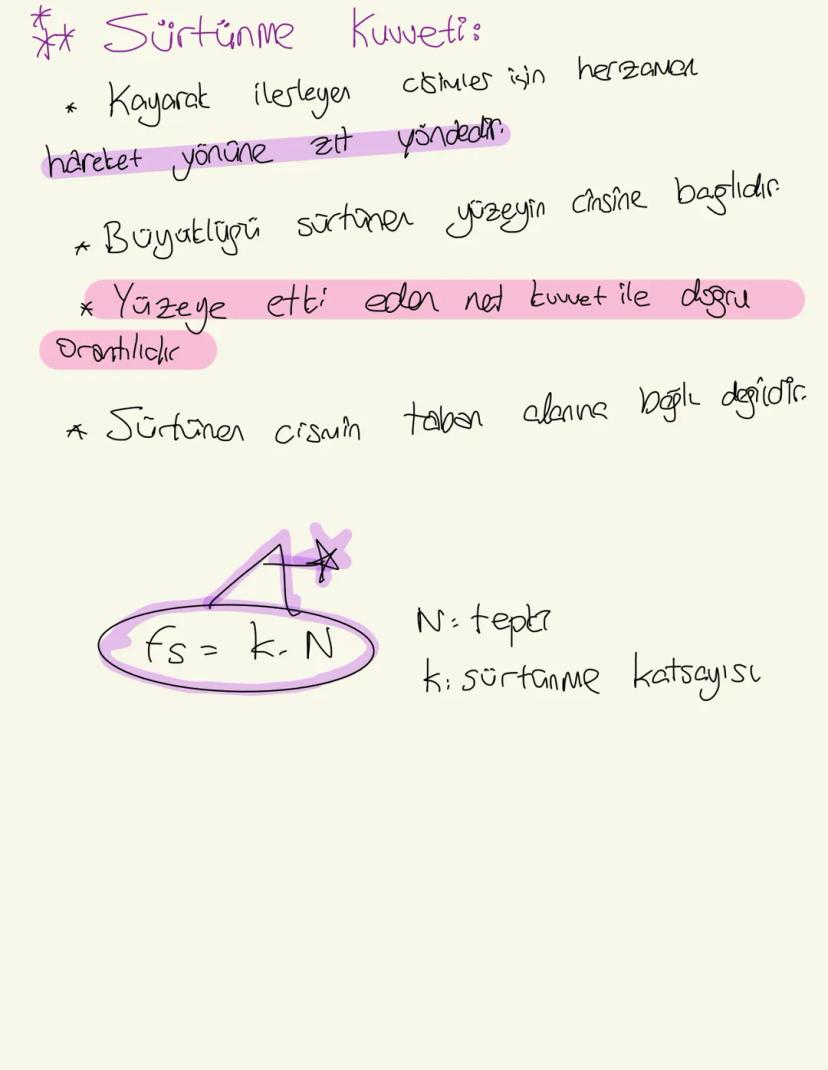 ** Sürtünme Kuvveti:
* Kayarak ilerleyen cisimler için herzaman
hareket yönüne zıt yöndedir.
* Büyüklüğü sürtünen yüzeyin cinsine bağlıdır.
* Yüzeye etki eden net kuvvet ile doğru
orantılıdır
* Sürtünen cismin taban alanına bağlı değildir.
fs = k. N
N: tepki
k: sürtünme katsayısı